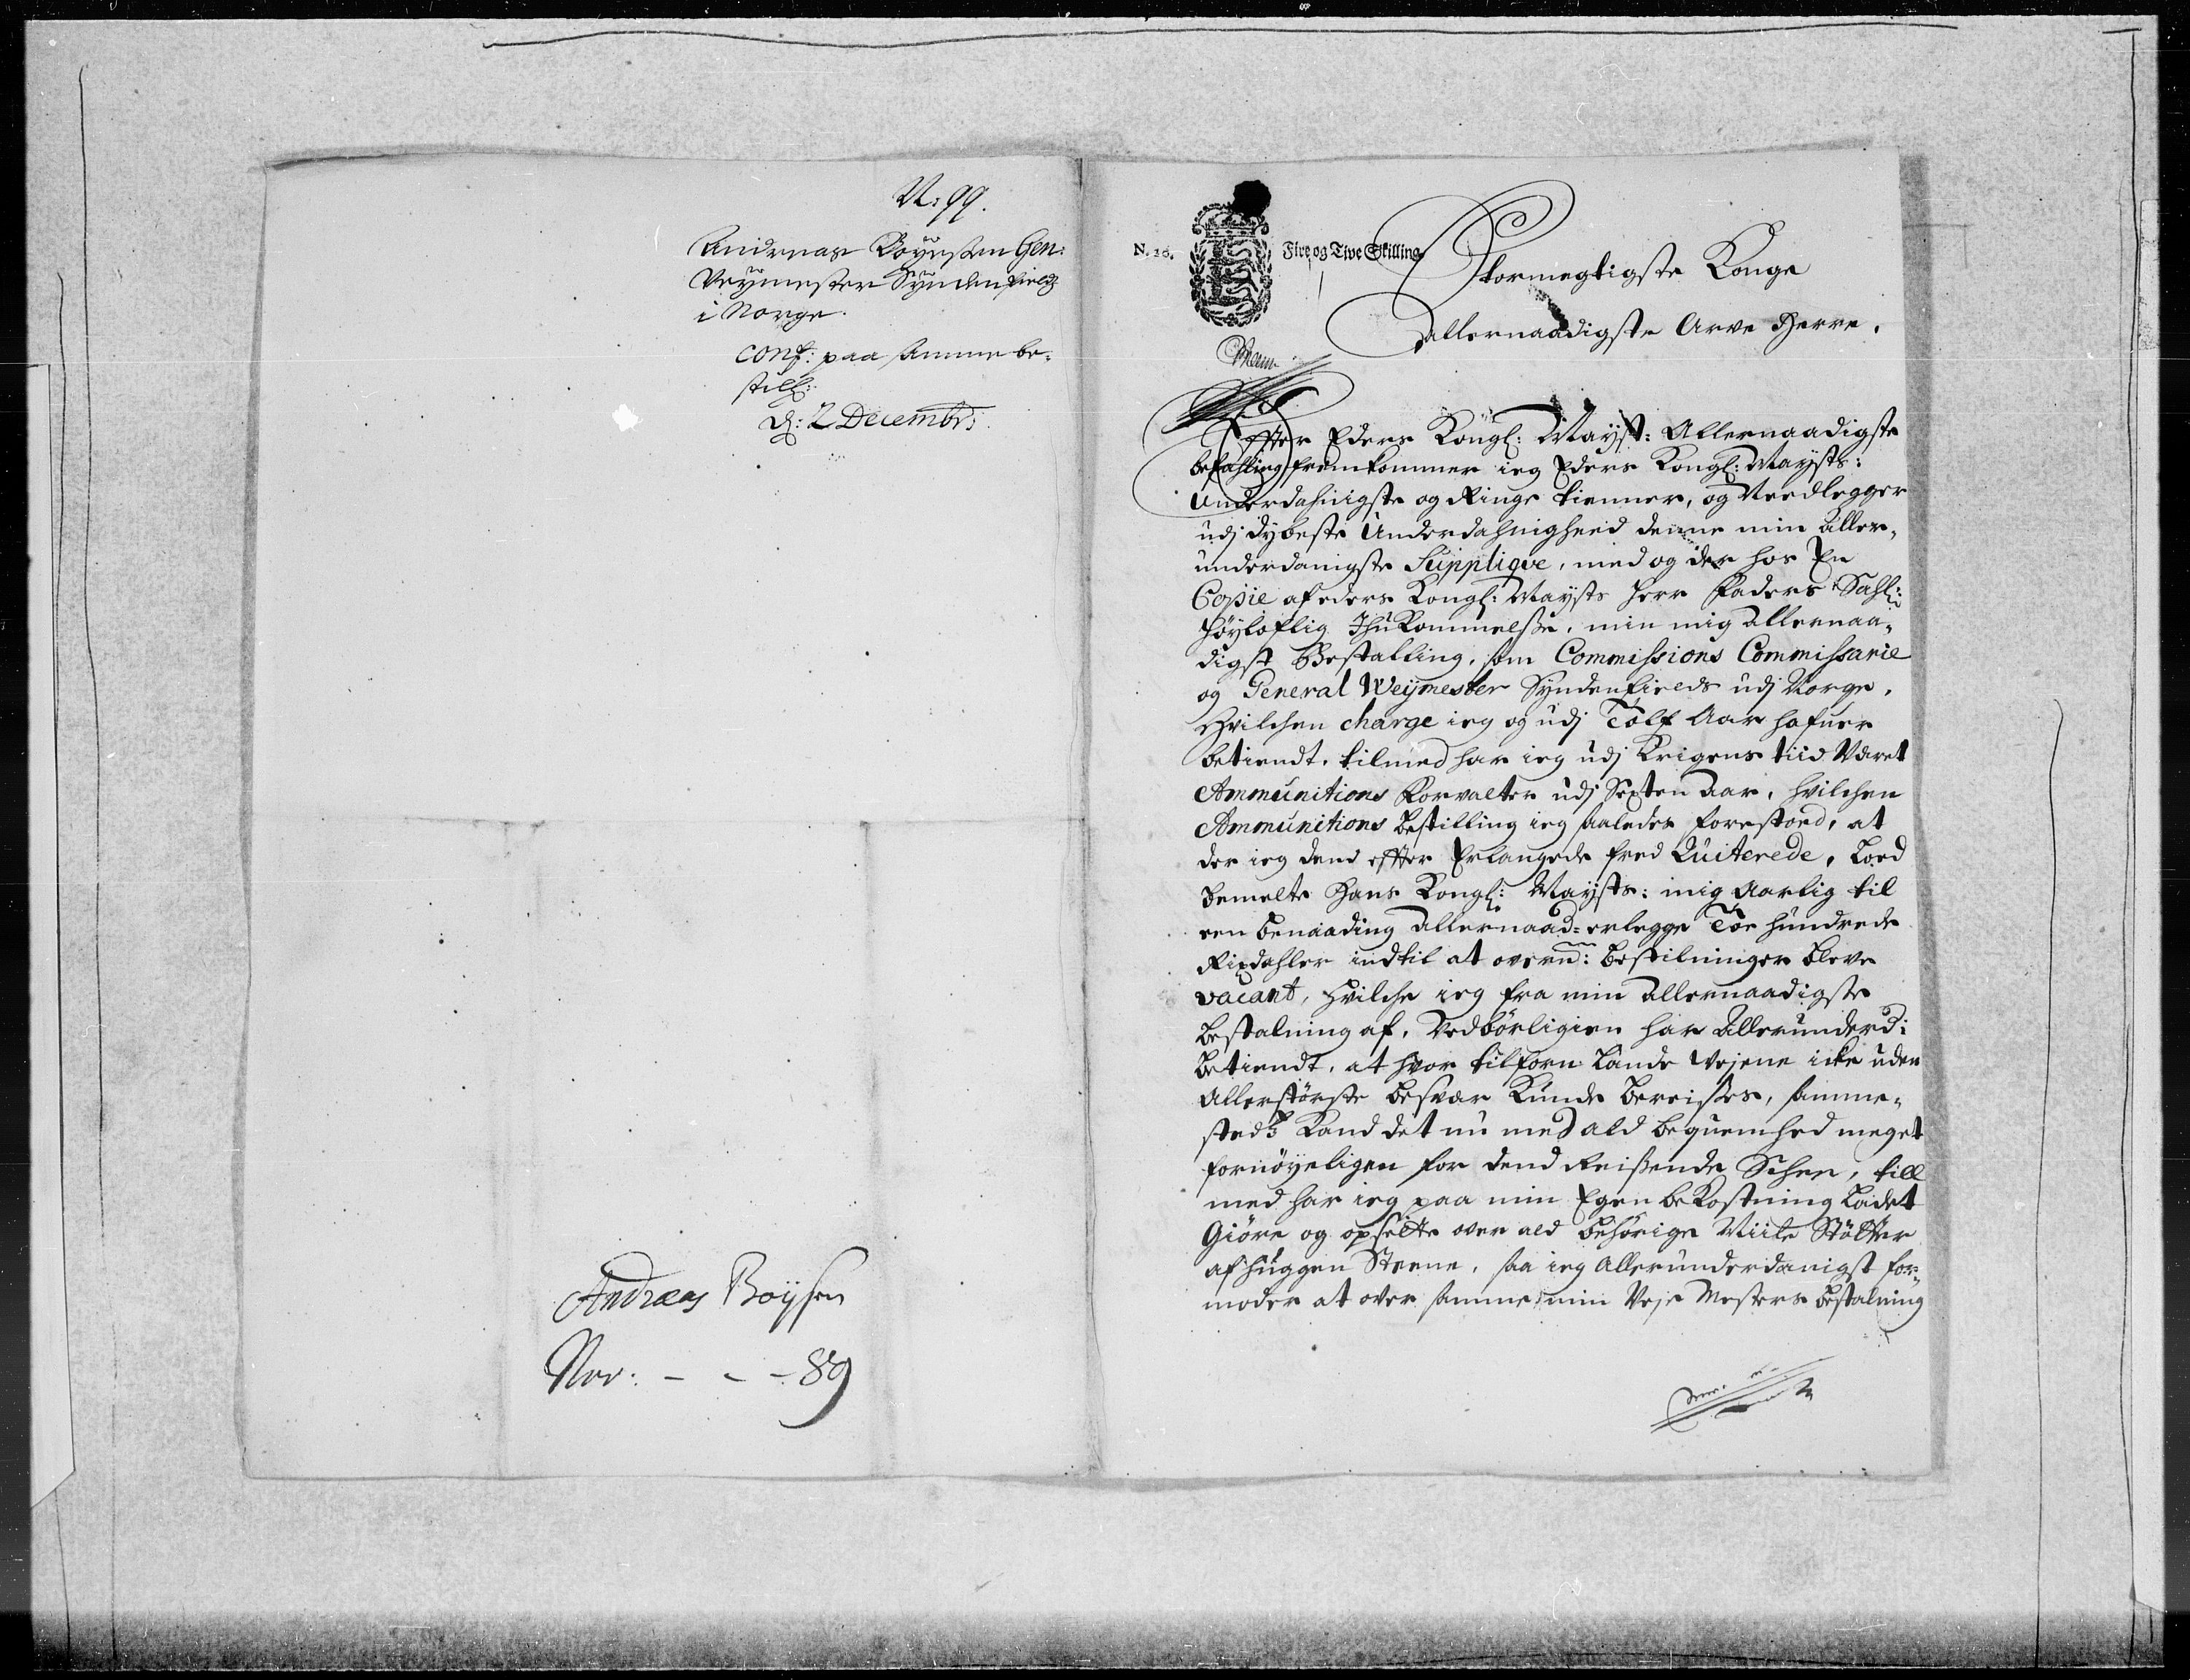 N: 99.
Andreas Böyesen Gen:
Veymester Syndenfields
i Norge.
conf: paa samme be-
still:
d: 2 Decembr:
Andreas Boysen
Nor: - - - 89
N. 16.
Fire og Tive Skilling
Stormegtigste Konge
Allernaadigste Arve Herre.
Effter Eders Kongl: Mayst: Allernaadigste
befahling fremkommer ieg Eders Kongl: Maysts:
Underdahnigste og Ringe tienner, og Needlegger
udj dybeste Underdahnigheed denne min aller-
underdanigste Supplique, med og der hos En
Copie af eders Kongl: Maysts Herr Faders Sahl:
höyloflig Ihukommelsse, min mig Allernaa-
digst Bestalling, som Commissions Commissarie
og General Weymester Syndenfields udj Norge.
Hvilchen charge ieg og udj Tolf Aar hafuer
betiendt, tilmed har ieg udj Krigens tiid Været
Ammunitions Forvalter udj Sexten Aar, hvilchen
Ammunitions bestilling ieg saaledes forestoed, at
der ieg dend effter Erlangede fred Quiterede, Loed
bemelte Hans Kongl: Maysts: mig Aarlig til
een benaading Allernaad: erlegge Toe hundrede
Rixdahler indtil at overn: bestilninger bleve
vacant, hvilche ieg fra min allernaadigste
bestalning af, Vedbörligien har Allerunderd:
betiendt, at hvor tilforn Lande Vejene icke uden
Allerstörste besvær Kunde bereisses, samme-
steds Kand det nu med ald bequemhed meget
fornöyeligen for dend Reissende Schee, till
med har ieg paa min Egen bekostning ladet
Giöre og opsette over ald behörige Miile Stötter
af huggen Steene, saa ieg Allerunderdanigst for-
moder at over samme min Veje Mesters bestalning